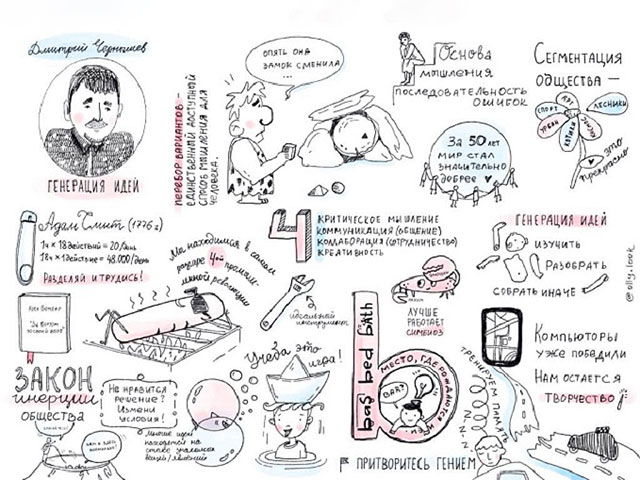 Дмитрий Чернышев
ГЕНЕРАЦИЯ ИДЕЙ
ПЕРЕБОР ВАРИАНТОВ -
ЕДИНСТВЕННЫЙ ДОСТУПНЫЙ
СПОСОБ МЫШЛЕНИЯ ДЛЯ
ЧЕЛОВЕКА.
ОПЯТЬ ОНА
ЗАМОК СМЕНИЛА
...
Основа
мышления
ПОСЛЕДОВАТЕЛЬНОСТЬ
ОШИБОК
За 50 лет
МИР СТАЛ
ЗНАЧИТЕЛЬНО
добрее
СЕГМЕНТАЦИЯ
ОБЩЕСТВА —
СПОРТ
АРТ
ЛЕСНИКИ
УРБАН
это
прекрасно
Адам Смит (1776 г)
1ч × 18 действий = 20/день
18ч × 1 действие = 48.000/день
РАЗДЕЛЯЙ И ТРУДИСЬ!
Мы находимся в самом
разгаре 4ой промыш-
ленной революции
4
КРИТИЧЕСКОЕ МЫШЛЕНИЕ
КОММУНИКАЦИЯ (ОБЩЕНИЕ)
КОЛЛАБОРАЦИЯ (СОТРУДНИЧЕСТВО)
КРЕАТИВНОСТЬ
ГЕНЕРАЦИЯ ИДЕЙ
ИЗУЧИТЬ
РАЗОБРАТЬ
СОБРАТЬ ИНАЧЕ
@olly.look
идеальный
инструмент
ЛУЧШЕ
РАБОТАЕТ
СИМБИОЗ
bus bed bath
МЕСТО, ГДЕ РОЖДАЮТСЯ ИДЕИ
БАР?
КОМПЬЮТОРЫ
УЖЕ ПОБЕДИЛИ
НАМ ОСТАЕТСЯ
ТВОРЧЕСТВО!
ЗАКОН
инерции
ОБЩЕСТВА
Не нравится
решение?
Измени
условия!
многие идеи
находятся на
стыке
Учеба это
игра!
ТРЕНИРУЕМ ПАМЯТЬ
ПРИТВОРИТЕСЬ ГЕНИЕМ